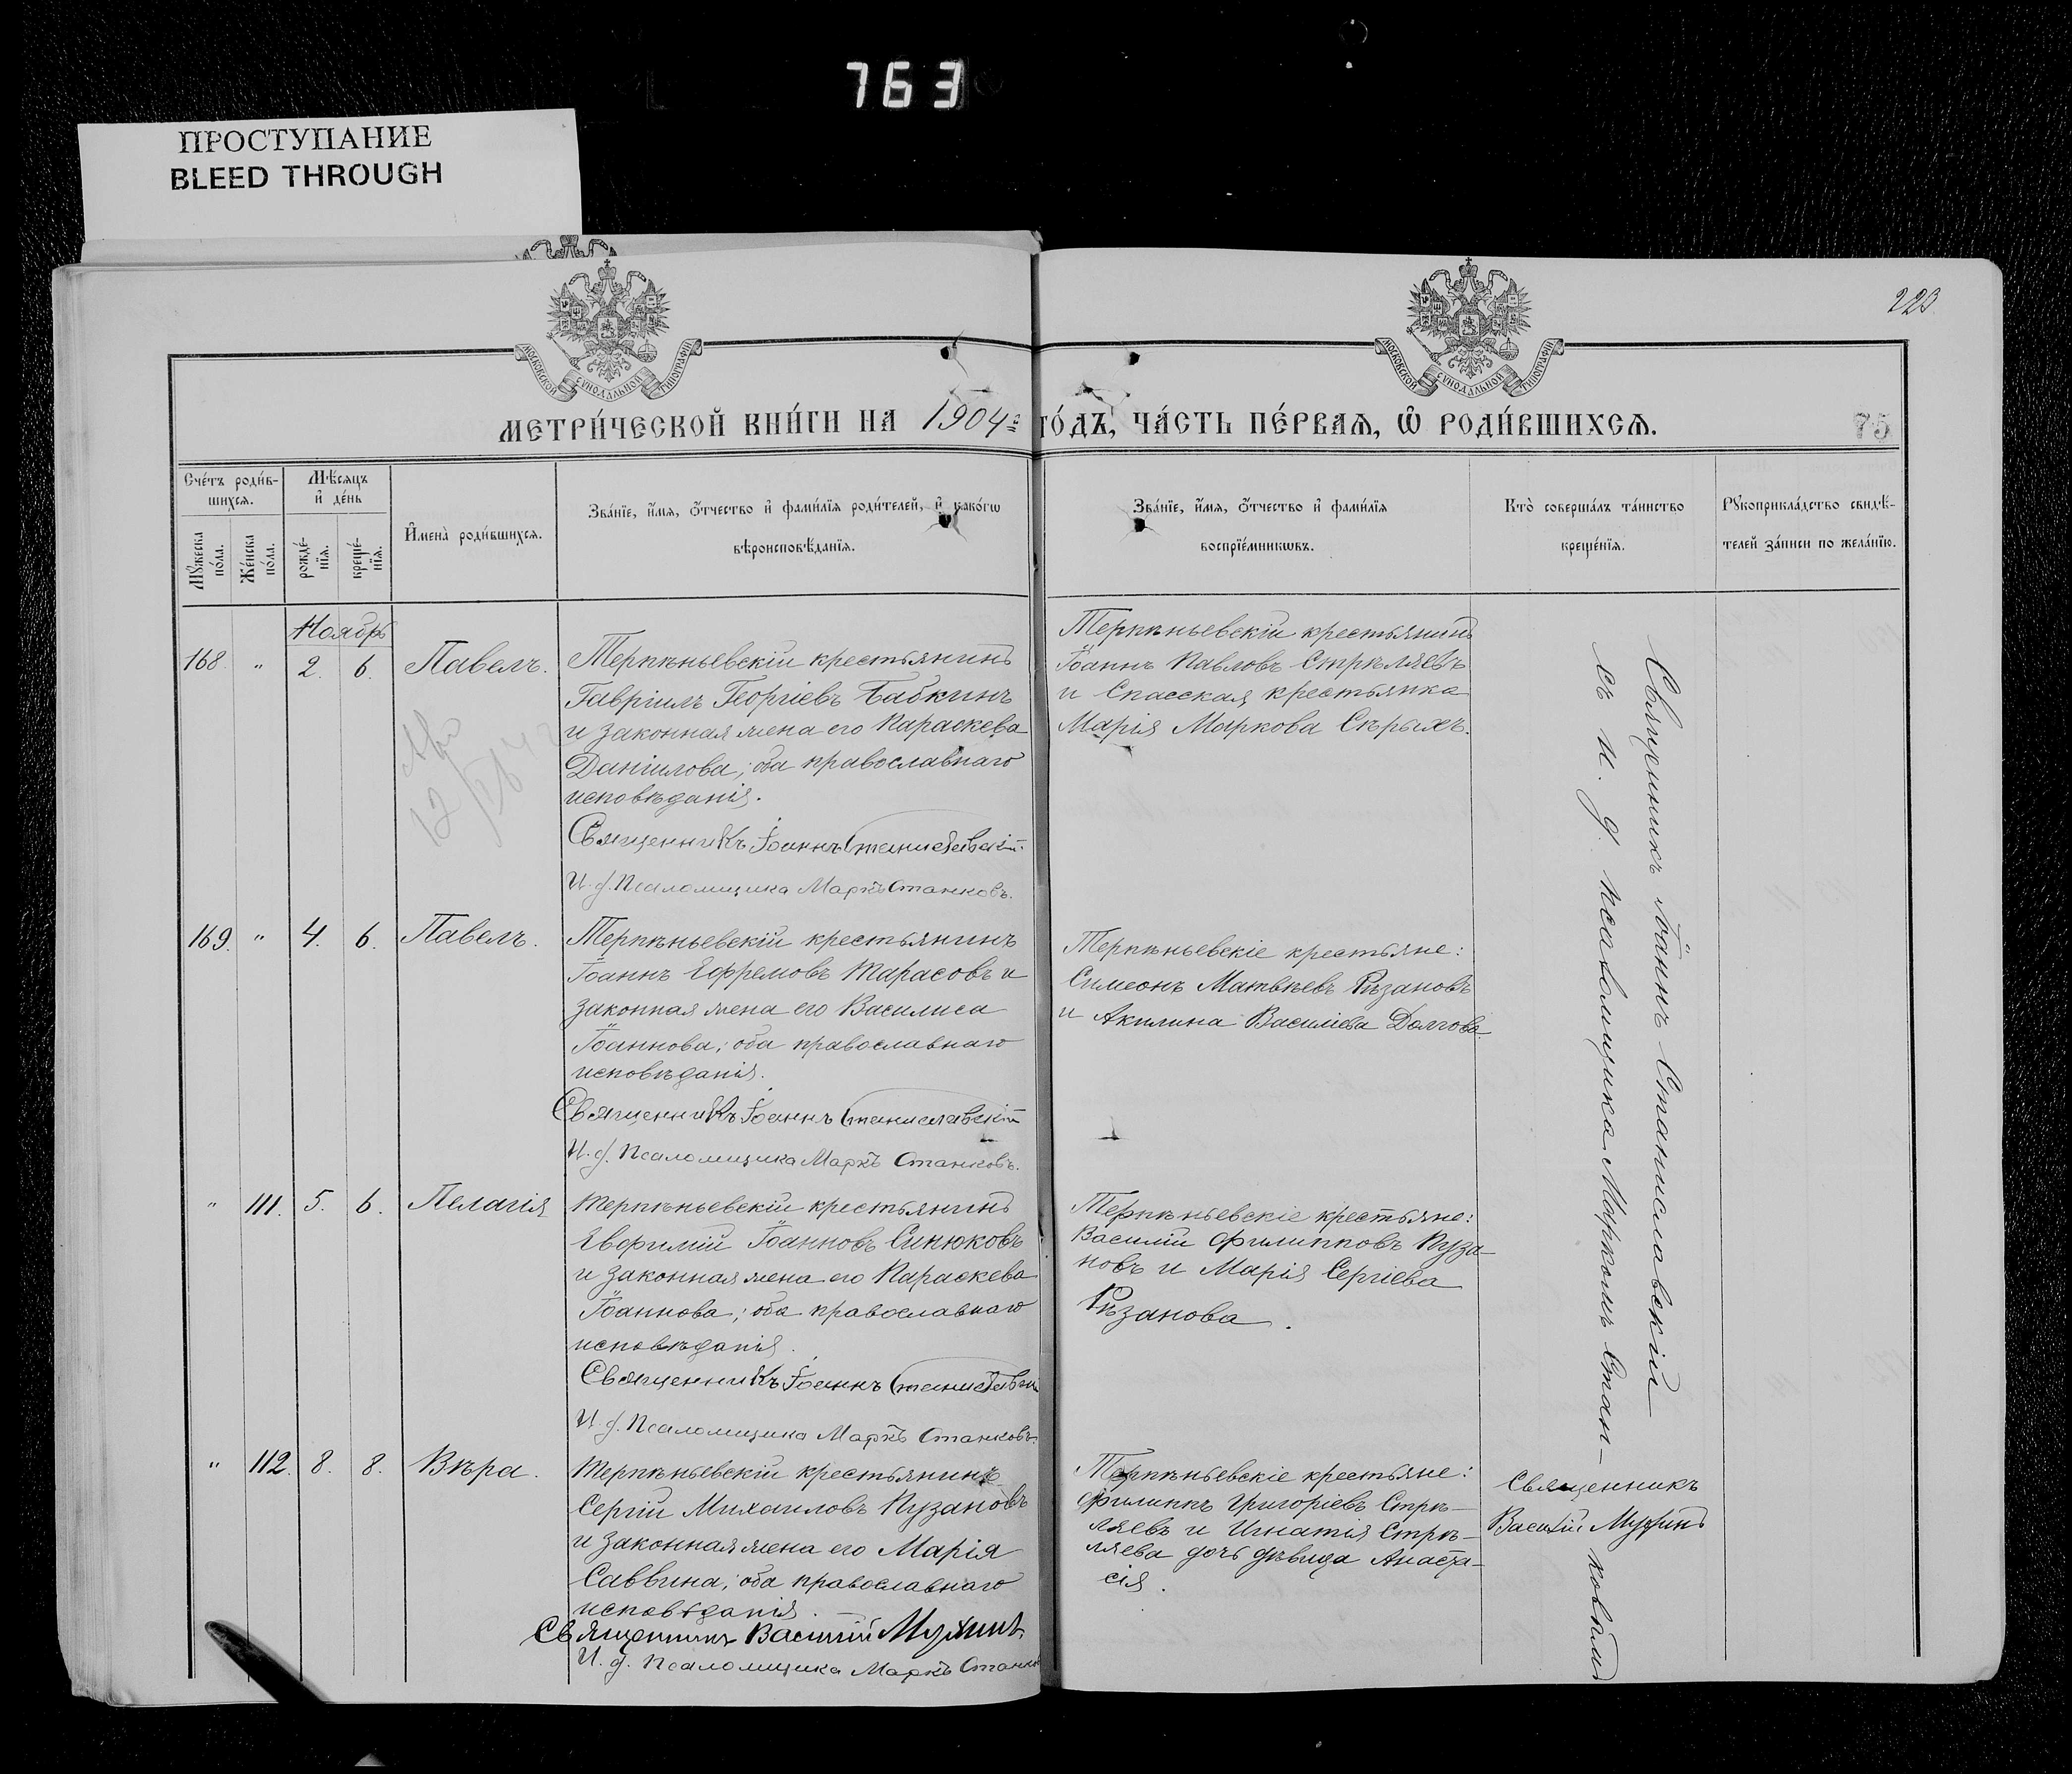 763
ПРОСТУПАНИЕ
BLEED THROUGH
223.
МОСКОВСКОЙ СѴНОДАЛЬНОЙ ТИПОГРАФІИ
МОСКОВСКОЙ СѴНОДАЛЬНОЙ ТИПОГРАФІИ
МЕТРИ́ЧЕСКОЙ КНИ́ГИ НА 1904 го́дъ, ча́сть пе́рваѧ, ѡ҆ роди́вшихсѧ.
75
Сче́тъ роди́в-
шихсѧ.
Мꙋ́жеска по́ла.
Же́нска по́ла.
Мѣ́сяцъ
и҆ де́нь
рожде́-
нїѧ.
креще́-
нїѧ.
И҆мена̀ роди́вшихсѧ.
Зва́нїе, и҆́мѧ, ѻ҆́тчество и҆ фами́лїѧ роди́телей, и҆ како́гѡ
вѣроисповѣ́данїѧ.
Зва́нїе, и҆́мѧ, ѻ҆́тчество и҆ фами́лїѧ
воспрїе́мникѡвъ.
Кто̀ соверша́лъ та́инство
креще́нїѧ.
Рꙋкоприкла́дство свидѣ́-
телей за́писи по жела́нїю.
Ноябрь
168. " 2. 6. Павелъ.
Терпѣньевскій крестьянинъ
Гавріилъ Георгіевъ Бабкинъ
и законная жена его Параскева
Даніилова; оба православнаго
исповѣданія.
Священникъ Іоаннъ Станиславскій.
И. д. Псаломщика Маркъ Станковъ.
Терпѣньевскій крестьянинъ
Іоаннъ Павловъ Стрѣляевъ
и Спасская крестьянка
Марія Маркова Сѣрыхъ.
169. " 4. 6. Павелъ.
Терпѣньевскій крестьянинъ
Іоаннъ Ефремовъ Тарасовъ и
законная жена его Василиса
Іоаннова; оба православнаго
исповѣданія.
Священникъ Іоаннъ Станиславскій
И. д. Псаломщика Маркъ Станковъ.
Терпѣньевскіе крестьяне:
Симеонъ Матвѣевъ Рѣзановъ
и Акилина Василіева Долгова.
" 111. 5. 6. Пелагія
Терпѣньевскій крестьянинъ
Евфимій Іоанновъ Синюковъ
и законная жена его Параскева
Іоаннова; оба православнаго
исповѣданія.
Священникъ Іоаннъ Станиславскій
И. д. Псаломщика Маркъ Станковъ.
Терпѣньевскіе крестьяне:
Василій Филипповъ Пуза-
новъ и Марія Сергіева
Рѣзанова.
" 112. 8. 8. Вѣра.
Терпѣньевскій крестьянинъ
Сергій Михаиловъ Пузановъ
и законная жена его Марія
Саввина; оба православнаго
исповѣданія.
Священникъ Василій Мухинъ
И. д. Псаломщика Маркъ Станков
Терпѣньевскіе крестьяне:
Филиппъ Григоріевъ Стрѣ-
ляевъ и Игнатія Стрѣ-
ляева дочь дѣвица Анаста-
сія.
Священникъ Іоаннъ Станиславскій
съ и. д. псаломщика Маркомъ Стан-
ковымъ
Священникъ
Василій Мухинъ